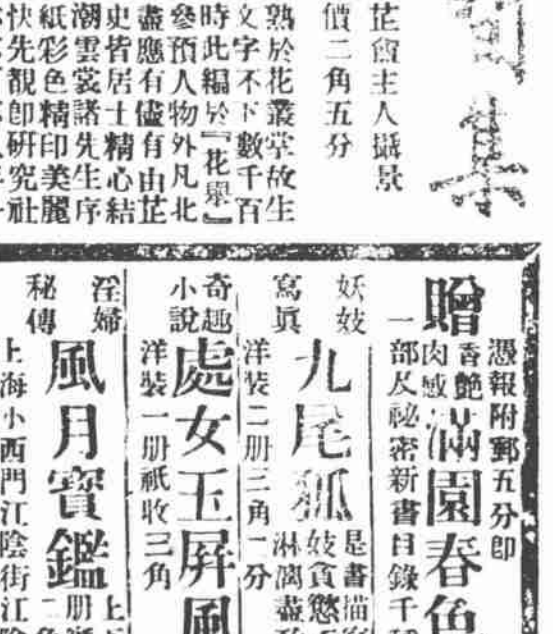 芷僧主人攝景
價二角五分
熟於花叢掌故生
文字不下數千百
時此編於『花舉』
參預人物外凡北
盡應有儘有由芷
史皆居士精心結
潮雲裳諸先生序
紙彩色精印美麗
快先覩卽研究社
憑報附郵五分卽
贈
香艷
肉感
滿園春色
一部及祕密新書目錄
妖妓
寫眞
九尾狐
是書描
妓貪慾
淋漓盡
洋裝二册三角二分
奇趣
小說
處女玉屏風
洋裝一册祇收三角
淫婦
秘傳
風月寶鑑
上
册
二
上海小西門江陰街江